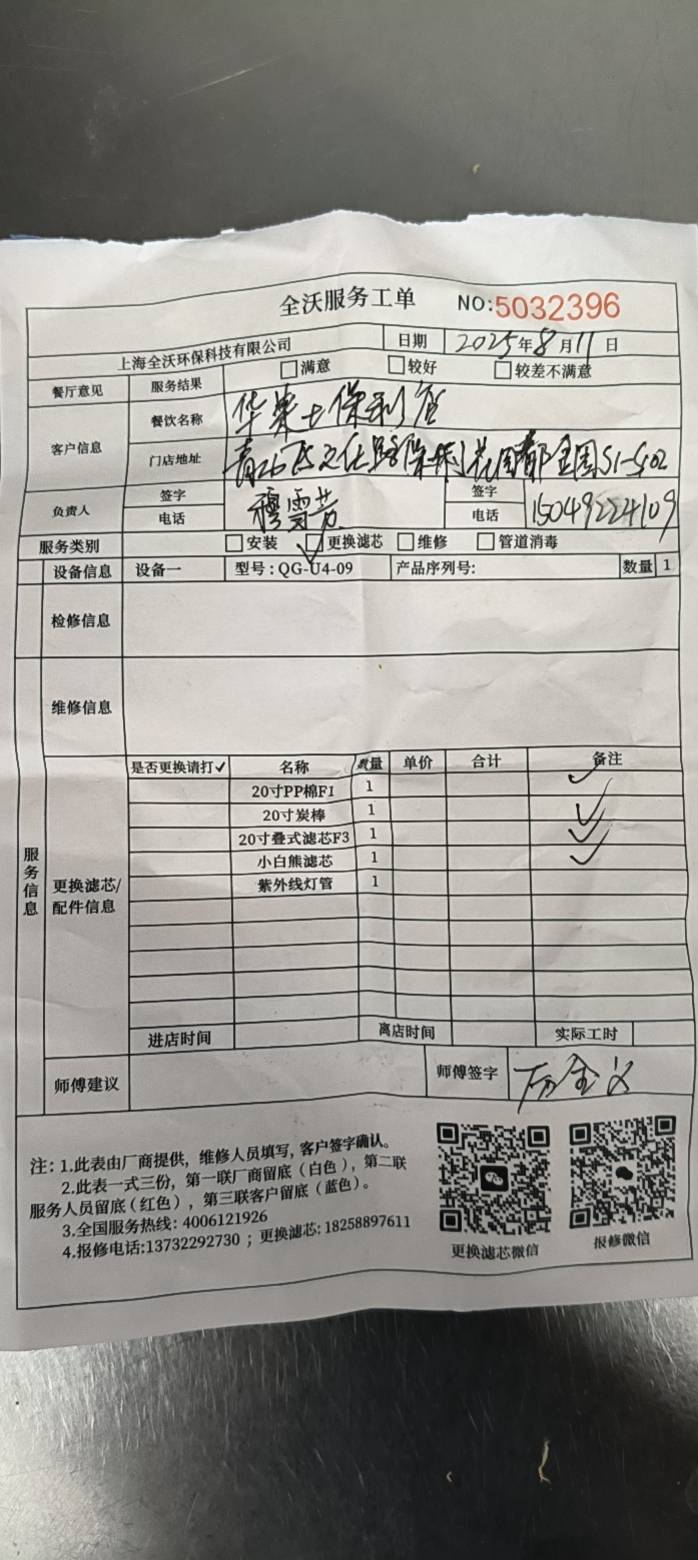 全沃服务工单 NO:5032396
上海全沃环保科技有限公司 日期 2025年8月11日
餐厅意见 服务结果 满意 较好 较差不满意
客户信息 餐饮名称 华莱士保利店
门店地址 S1-S02
负责人 签字 签字
电话 穆雪芳 电话 15049224109
服务类别 安装 ✓更换滤芯 维修 管道消毒
设备信息 设备一 型号:QG-U4-09 产品序列号: 数量 1
检修信息
维修信息
服务信息
更换滤芯/配件信息
是否更换请打✓ 名称 数量 单价 合计 备注
20寸PP棉F1 1 ✓
20寸炭棒 1 ✓
20寸叠式滤芯F3 1 ✓
小白熊滤芯 1 ✓
紫外线灯管 1
进店时间 离店时间 实际工时
师傅建议 师傅签字
注:1.此表由厂商提供,维修人员填写,客户签字确认。
2.此表一式三份,第一联厂商留底(白色),第二联
服务人员留底(红色),第三联客户留底(蓝色)。
3.全国服务热线:4006121926
4.报修电话:13732292730 ;更换滤芯:18258897611
更换滤芯微信 报修微信